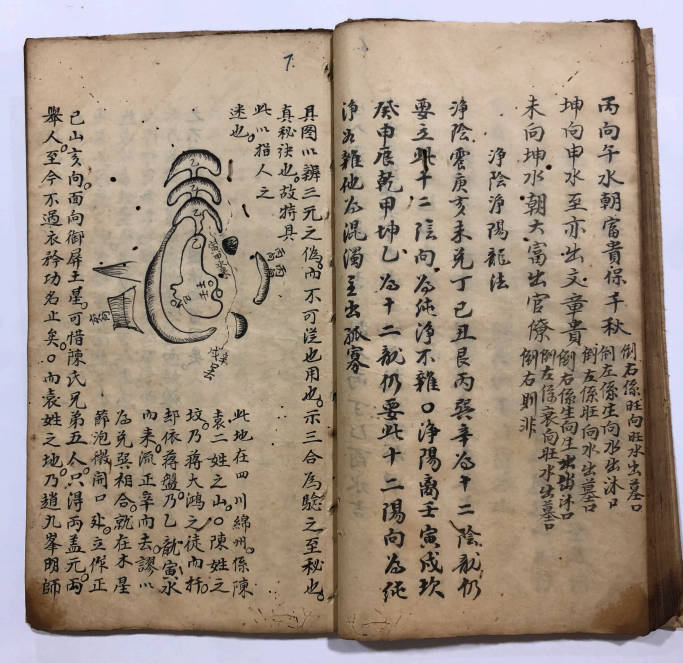 丙向午水朝富貴保千秋
倒右係旺向旺水出墓口
倒左係生向水出沐口
坤向申水至亦出文章貴
倒左係旺向水出墓口
倒右係生向生出沐口
未向坤水朝大富出官僚
倒左係衰向旺水出墓口
倒右則非
淨陰淨陽龍法
淨陰震庚亥未兑丁巳丑艮丙巽辛為十二陰龍仍
要立此十二陰向為純淨不雜口淨陽离壬寅戌坎
癸申辰乾甲坤乙為十二龍仍要此十二陽向為純
淨若雜他為混濁主出孤寡
7.
具图以辨三元之偽而不可從也用也示三合為驗之至秘也
真秘诀也故特具
此以指人之
迷也
此地在四川綿州係陳
袁二姓之山陳姓之
坟乃蒋大鴻之徒而扦
却依蒋盤乃乙龍寅水
而来流正辛而去謬以
為兑巽相合就在木星
節泡微開口处立作正
巳山亥向面向御屏土星可惜陳氏兄弟五人只得两盖元两
舉人至今不過衣衿功名止矣口而袁姓之地乃趙九峯明師